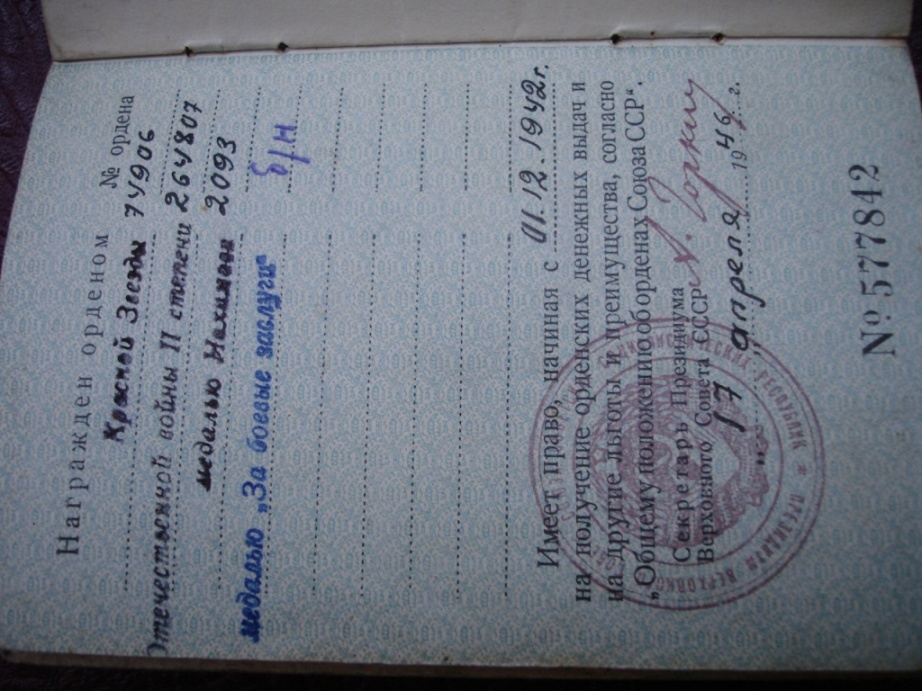 Награжден орденом № ордена
Красной Звезды 74906
Отечественной войны II степени 264807
медалью Нахимова 2093
медалью „За боевые заслуги“ б/н
Имеет право, начиная с 01.12.1942г.
на получение орденских денежных выдач и
на другие льготы и преимущества, согласно
„Общему положению об орденах Союза ССР“.
Секретарь Президиума
Верховного Совета СССР А. Горкин
„17“ апреля 1946 г.
№ 577842